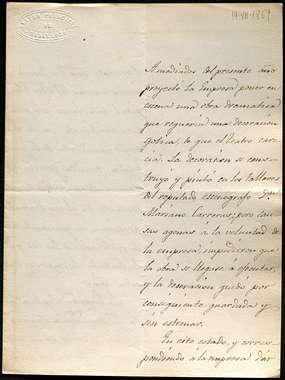 19-VII-1867
A mediados del presente año
proyectó la Empresa poner en
escena una obra dramática
que requeria una decoracion
gótica, lo que el teatro care
cia. La decoracion se cons-
truyó y pintó en los talleres
del reputado escenografo Dn.
Mariano Carreras; pero cau
sas agenas á la voluntad de
la empresa, impidieron que
la obra se llegase á ejecutar,
y la decoracion quedó por
consiguiente guardada y
sin estrenar.
En este estado, y corres
pondiendo á la empresa dar